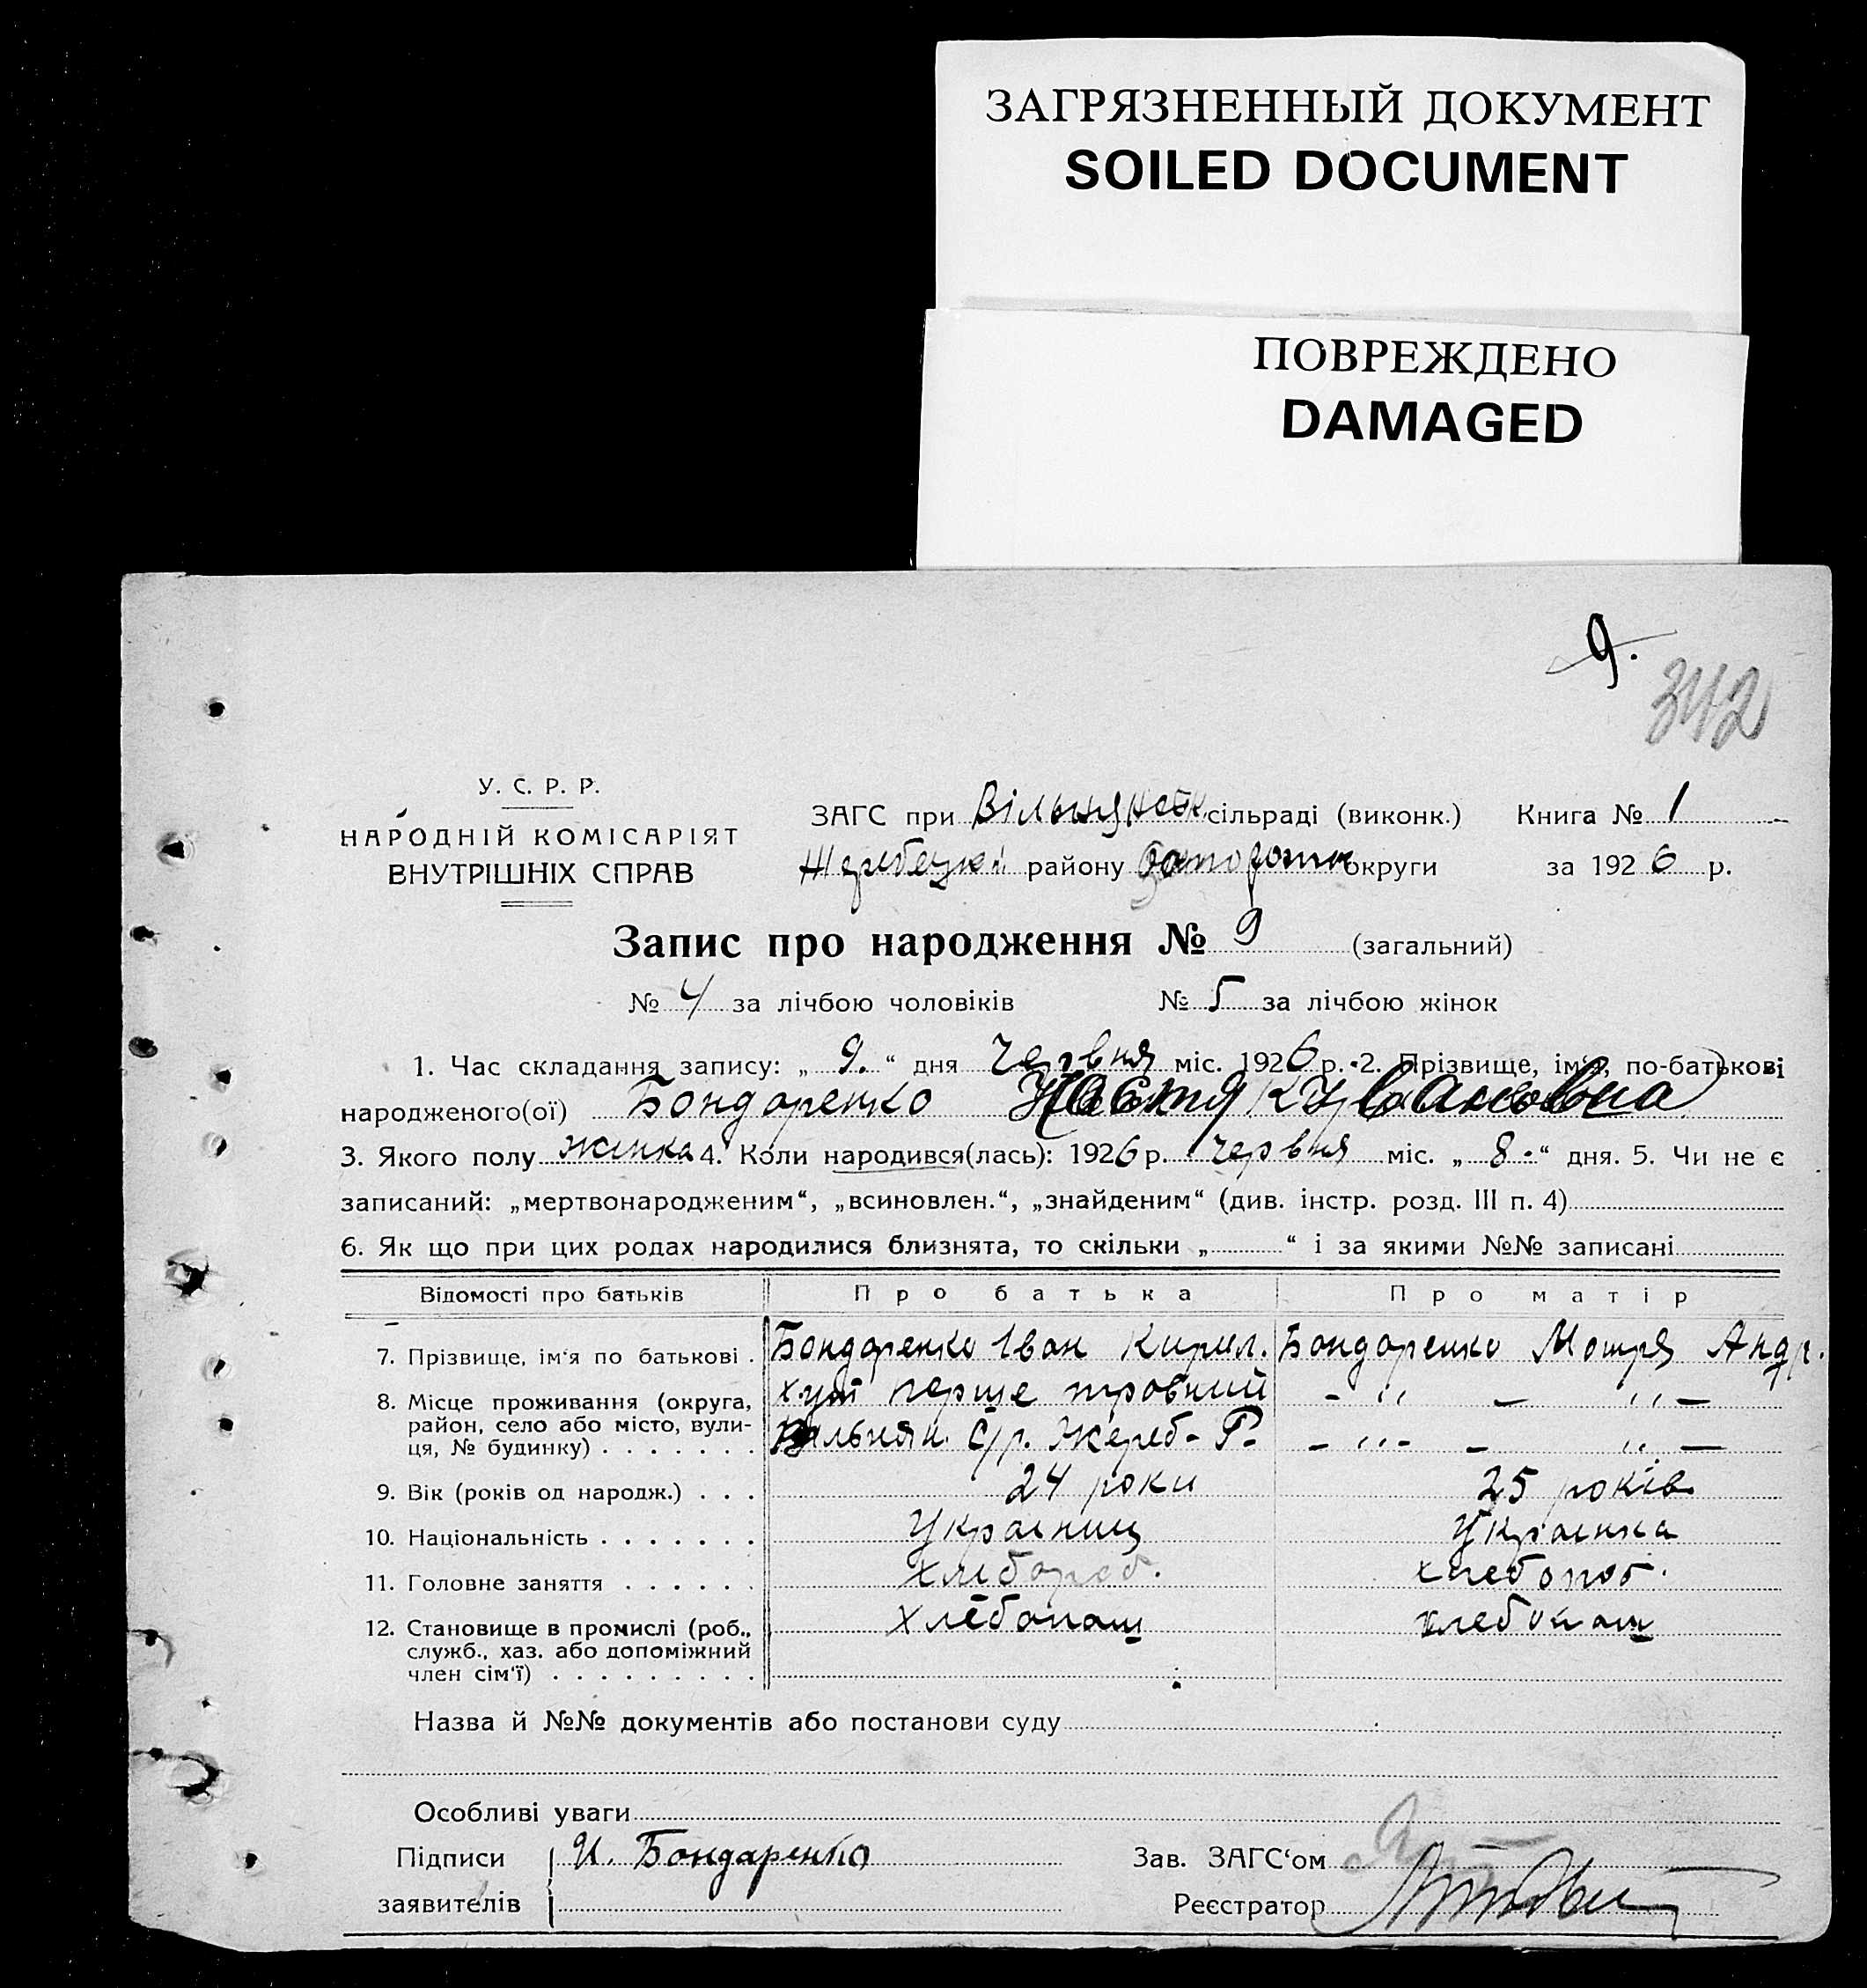 ЗАГРЯЗНЕННЫЙ ДОКУМЕНТ
SOILED DOCUMENT
ПОВРЕЖДЕНО
DAMAGED
9.
342
У. С. Р. Р.
НАРОДНІЙ КОМІСАРІЯТ
ВНУТРІШНІХ СПРАВ
ЗАГС при Вільнянськ сільраді (виконк.) Книга № 1
Жеребецьк. району Запорожи округи за 1926 р.
Запис про народження № 9 (загальний)
№ 4 за лічбою чоловіків № 5 за лічбою жінок
1. Час складання запису: „ 9. “ дня червня міс. 1926 р. 2. Прізвище, ім'я, по-батькові
народженого(ої) Бондаренко Настя Ивановна
3. Якого полу жінка 4. Коли народився(лась): 1926 р. червня міс. „ 8. “ дня. 5. Чи не є
записаний: „мертвонародженим“, „всиновлен.“, „знайденим“ (див. інстр. розд. III п. 4)
6. Як що при цих родах народилися близнята, то скільки „ “ і за якими №№ записані
Відомості про батьків Про батька Про матір
7. Прізвище, ім'я по батькові . Бондаренко Іван Кирил. Бондаренко Мотря Андр.
8. Місце проживання (округа, хут перше тровний - „ - „ -
район, село або місто, вули-
ця, № будинку) . . . . . . . Вільнян. с/р. Жереб- Р- - „ - - „ -
9. Вік (років од народж.) . . . 24 роки 25 років
10. Національність . . . . . . . Украинищ Украинка
11. Головне заняття . . . . . . хлібороб. хлебороб.
12. Становище в промислі (роб., хлебопаш хлебопаш
служб., хаз. або допоміжний
член сім'ї) . . . . . . . . .
Назва й №№ документів або постанови суду
Особливі уваги
Підписи И. Бондаренко Зав. ЗАГС'ом
заявителів Реєстратор